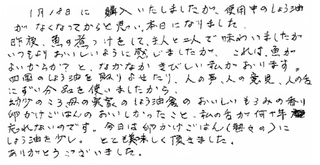 1月18日に 購入いたしましたが、使用中のしょう油
がなくなってからと思い、本日になりました。
昨夜、魚の煮つけをして、主人と二人で味わいましたが
いつもよりおいしいように感じましたが、これは、魚が
よいからか？と、なかなかきびしい私がおります。
四国のしょう油を取りよせたり、人の声、人の意見、人の舌
にすい分品を使いましたから、
幼少のころ母の実家のしょう油屋のおいしいもろみの香り
卵かけごはんのおいしかったこと、私の舌が何十年
忘れないのです。今日は卵かけごはん(時々の)に
しょう油を少し。とても美味しく頂きました。
ありがとうございました。